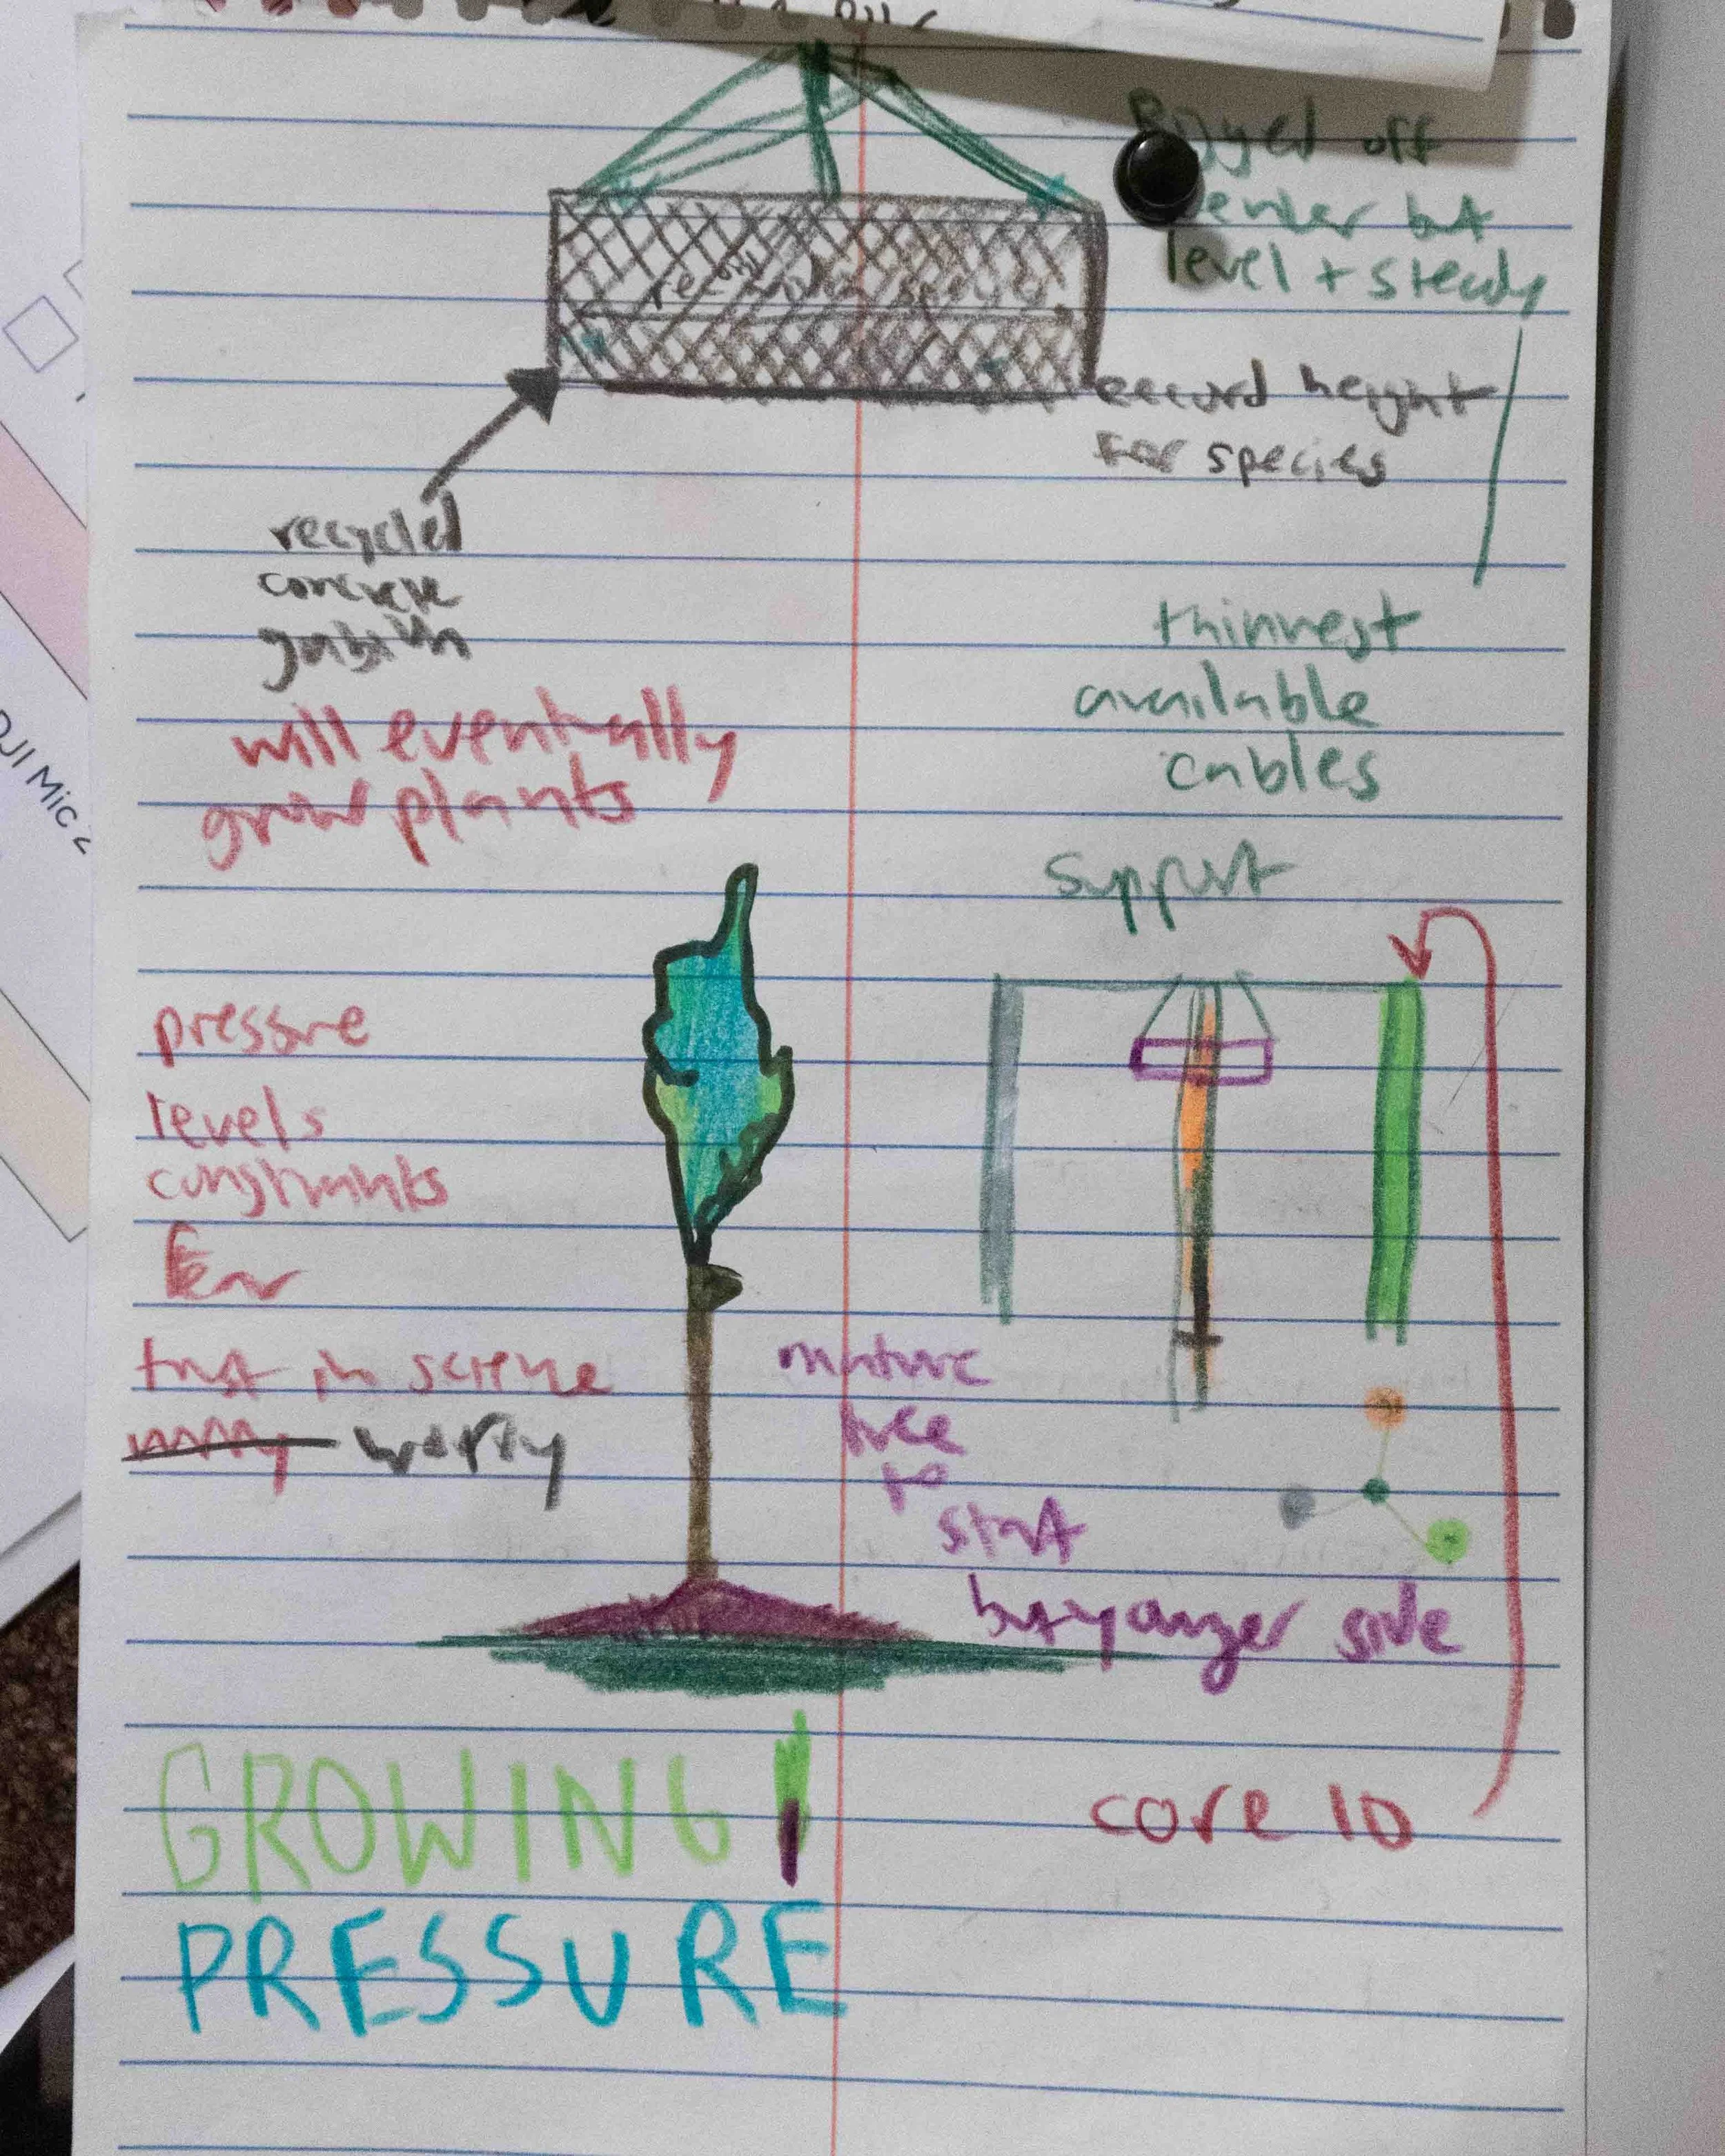 Rigged off
center but
level + steady
record height
for species
recycled
concrete
gabion
will eventually
grow plants
thinnest
available
cables
support
pressure
levels
constraints
fear
trust in science
worry worry
mature
tree
to
start
but younger side
GROWING
PRESSURE
core 10
DJI Mic 2